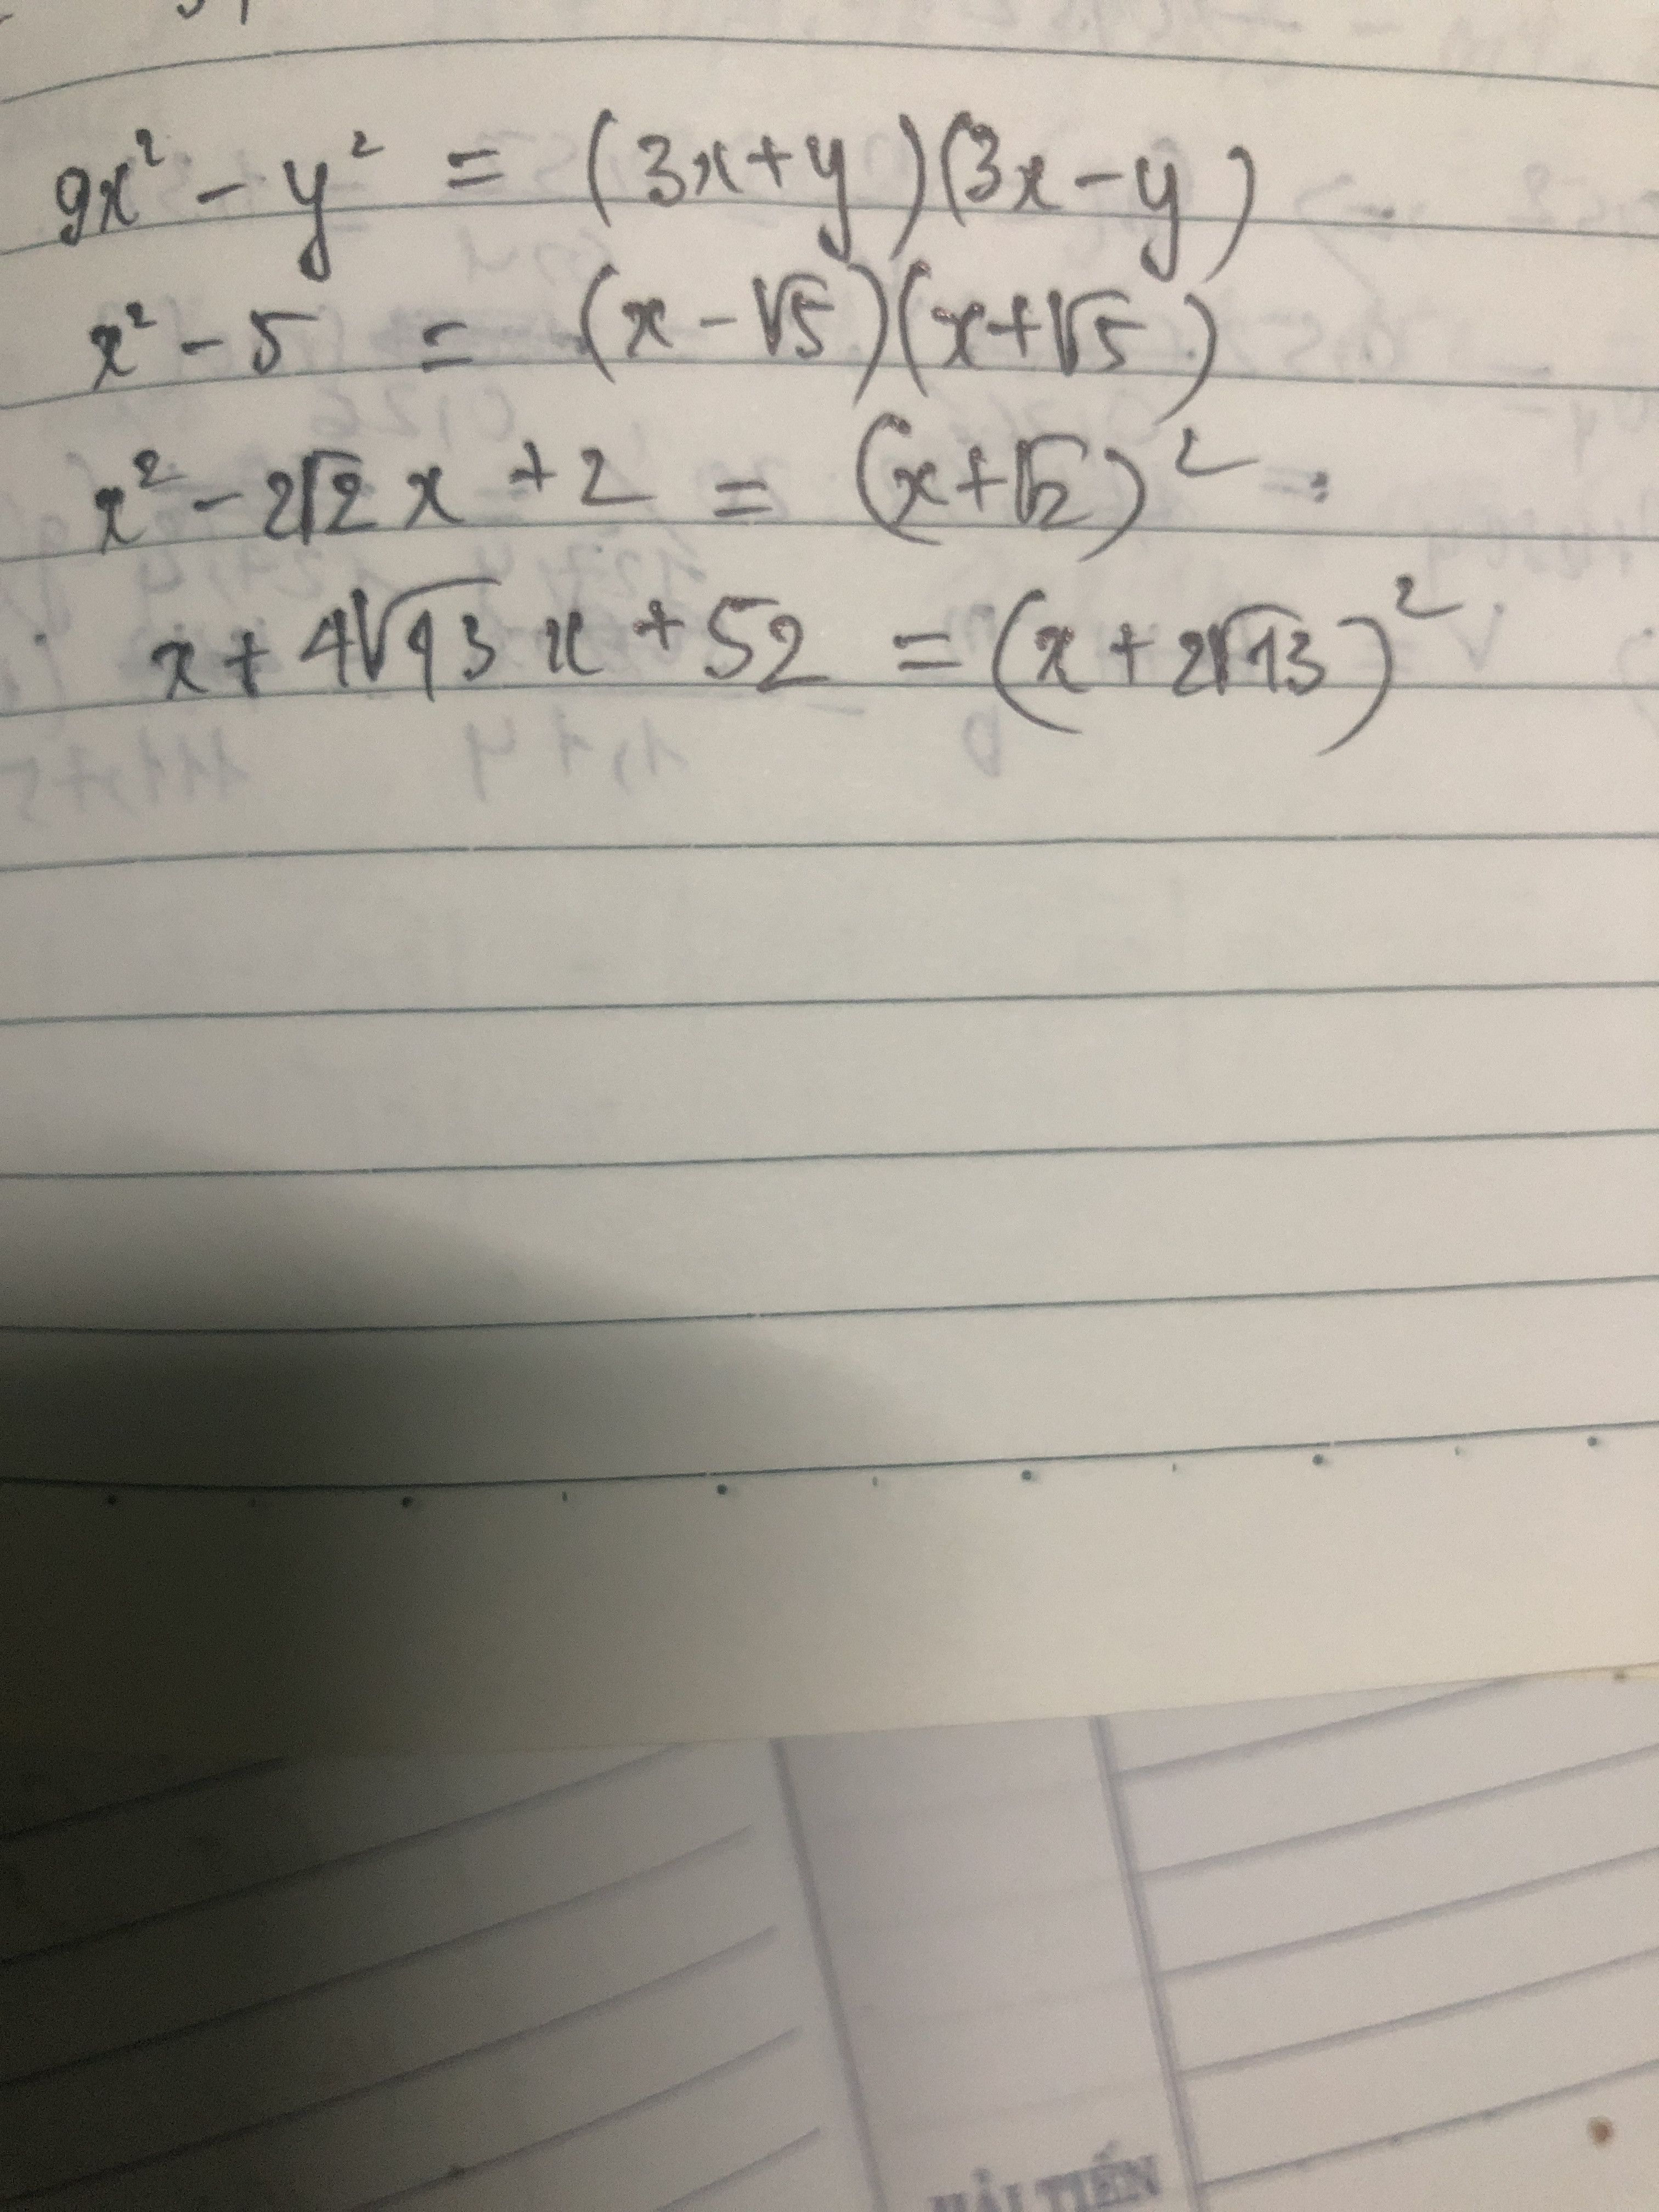 9x² - y² = (3x+y)(3x-y)
x² - 5 = (x-√5)(x+√5)
x² - 2√2 x + 2 = (x+√2)²
x + 4√13 x + 52 = (x + 2√13)²
HẢI TIẾN